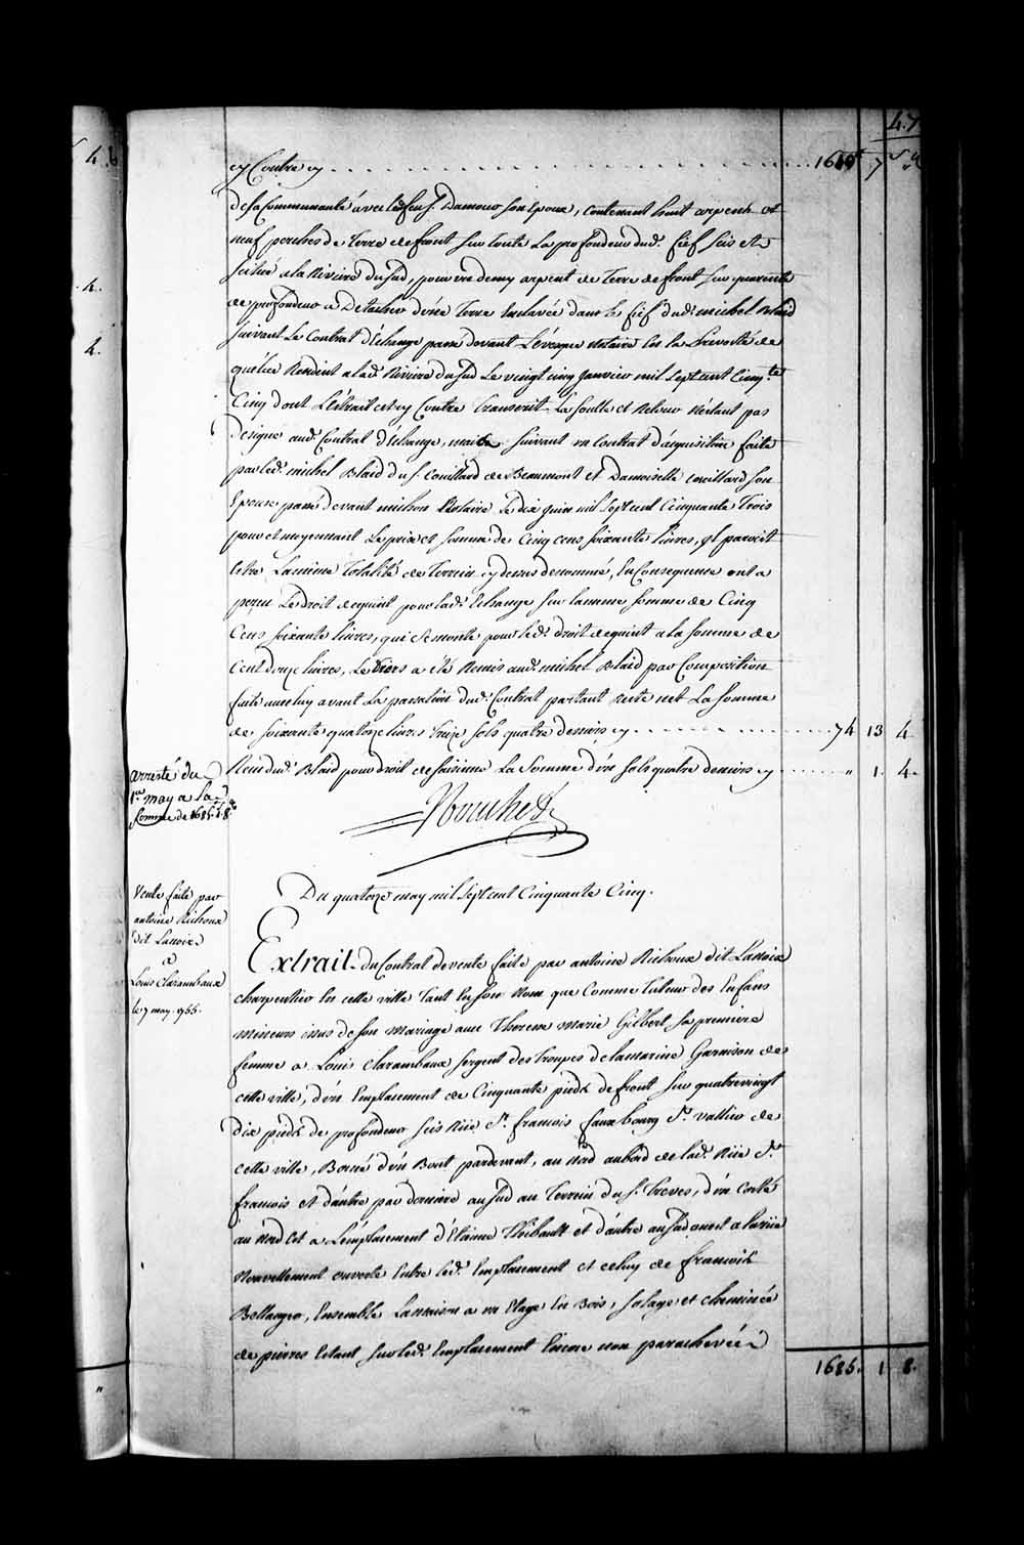 47
cy Contre cy . . . . . . . . . . 7
de sa Communauté avec led. feu S. Damour son Epoux, contenant huit arpents et
neuf perches de Terre de front sur toute La profondeur dud. fief scis et
scitué a la Riviere du Sud, pour un demy arpent de Terre de front sur quarante
de profondeur a Detacher d'une Terre Enclavée dans le fief dud. michel Blaid
suivant Le Contrat d'Echange passé devant Lévesque Notaire En la Prevosté de
québec Resident a lad. Riviere du Sud Le vingt cinq Janvier mil sept cent Cinq.te
Cinq dont L'Extrait est cy Contre transcrit La soulte et Retour n'étant pas
designé aud. Contrat d'Echange, mais suivant un Contrat d'acquisition faite
par led. michel Blaid du S. Couillard de Beaumont et Damoiselle Couillard son
Epouse passé devant michon Notaire le dix juin mil sept cent Cinquante Trois
pour et moyennant Le prix et somme de Cinq cens soixante livres, qui paroit
Estre La même Totalité de Terrein cy dessus denommé, En Consequence on a
perçu Le Droit de quint pour lad. Echange sur la même somme de Cinq
Cens soixante livres, qui se monte pour led. droit de quint a la somme de
Cent douze livres, Le tiers a été Remis aud. michel Blaid par Composition
faite avec luy avant La passation dud. Contrat partant reste net La somme
de soixante quatorze livres Treize sols quatre deniers cy . . . . . 74 13 4
Reçu dud. Blaid pour droit de saisinne La Somme d'un sols quatre deniers cy . . . . " 1. 4.
arresté du
1er may a la
somme de 1685. 1. 8.
Du quatorze may mil sept cent Cinquante Cinq.
Vente faite par
antoine Richoux
dit Lanoix
a
Louis Clarambaux
le 7 may. 1755.
Extrait du Contrat de vente faite par antoine Richoux dit Lanoix
charpentier En cette ville Tant En son Nom que Comme Tuteur des Enfans
mineurs issus de son Mariage avec Therese Marie Gilbert sa premiere
femme a Louis Clarambaux sergent des troupes de la marine Garnison de
cette ville, d'un Emplacement de Cinquante pieds de front sur quatrevingt
dix pieds de profondeur scis Rüe St. francois fauxbourg St. vallier de
cette ville, Borné d'un Bout pardevant, au Nord au bord de lad. Rüe St.
francois et d'autre par derriere au Sud au Terrein du S. Treves, d'un costé
au Nord Est a L'emplacement d'Etienne Thibault et d'autre au Sud ouest a la rüe
Nouvellement ouverte Entre led. Emplacement et celuy de francois
Bellanger, Ensemble La maison a un Etage En Bois, solage et cheminée
de pierres Estant sur led. Emplacement Encore non parachevée
1685. 1 8.